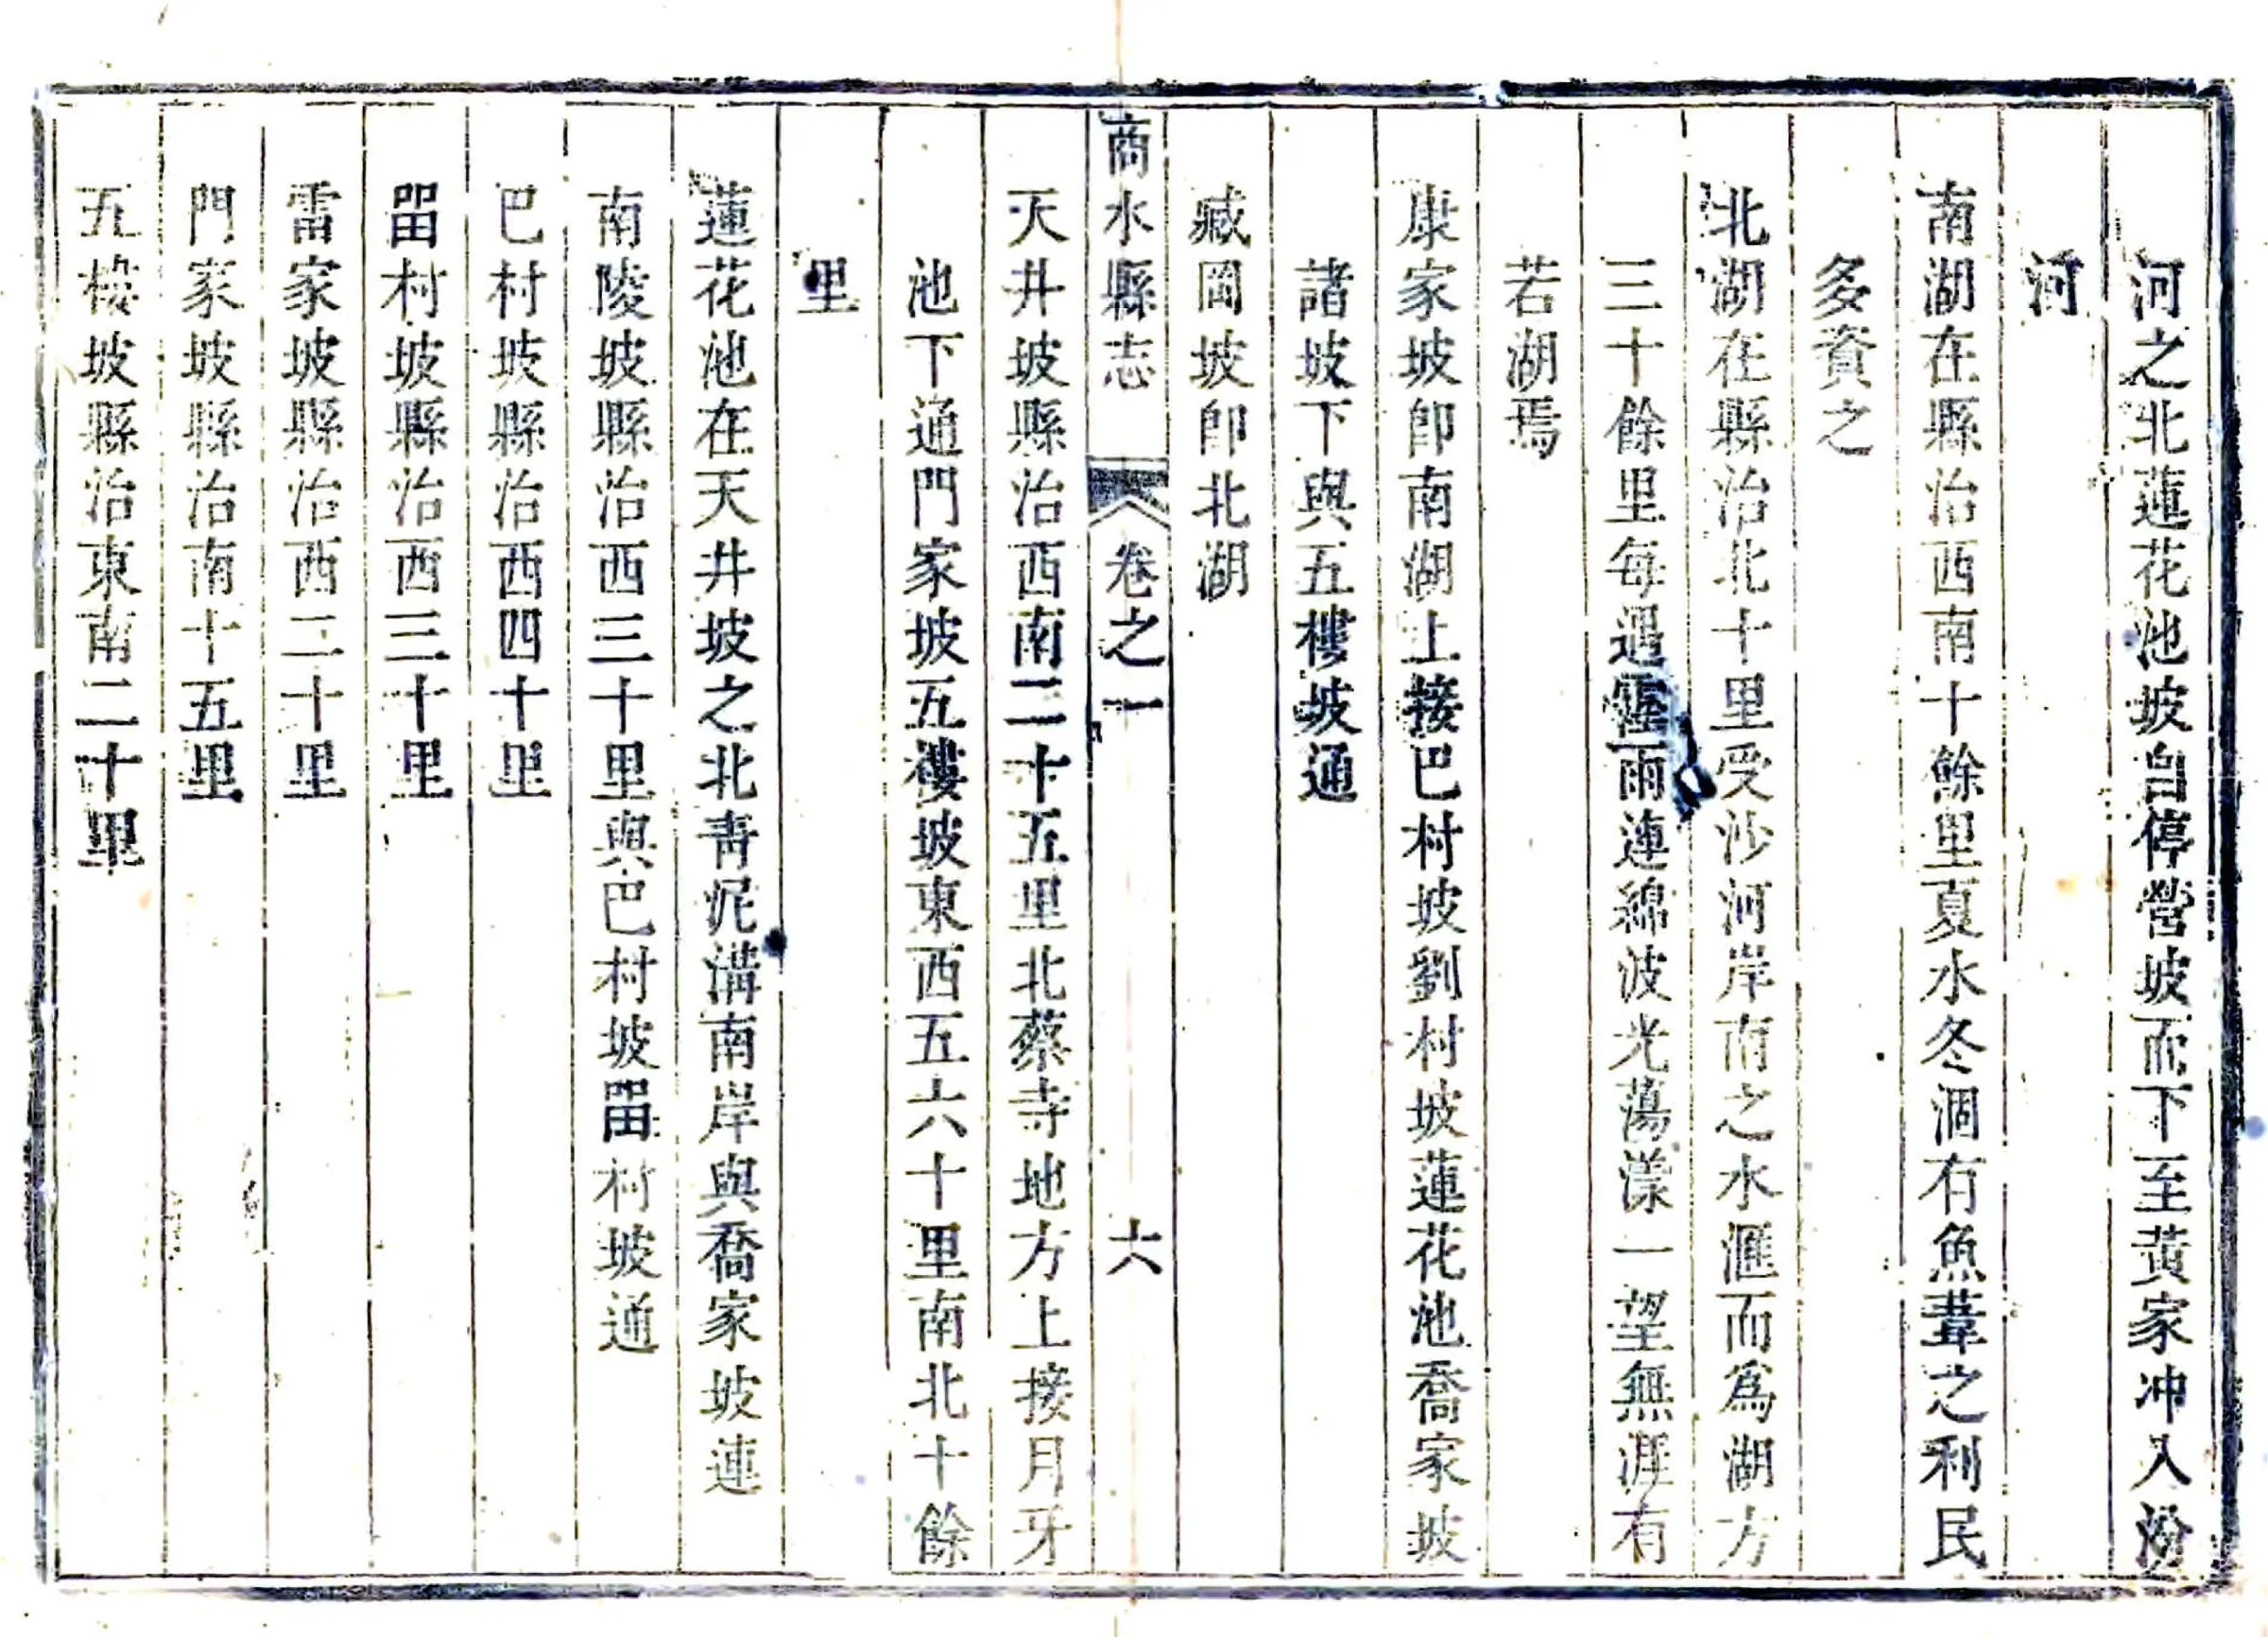 河之北蓮花池坡自停營坡而下至黃家冲入汾
河
南湖在縣治西南十餘里夏水冬涸有魚葦之利民
多資之
北湖在縣治北十里受沙河岸南之水滙而爲湖方
三十餘里每遇霪雨連綿波光蕩漾一望無涯有
若湖焉
康家坡卽南湖上接巴村坡劉村坡蓮花池喬家坡
諸坡下與五樓坡通
臧岡坡卽北湖
商水縣志 卷之一 六
天井坡縣治西南二十五里北蔡寺地方上接月牙
池下通門家坡五樓坡東西五六十里南北十餘
里
蓮花池在天井坡之北靑泥溝南岸與喬家坡連
南陵坡縣治西三十里與巴村坡畱村坡通
巴村坡縣治西四十里
畱村坡縣治西三十里
雷家坡縣治西二十里
門家坡縣治南十五里
五樓坡縣治東南二十里